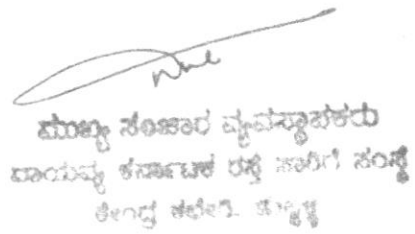 ಮುಖ್ಯ ಸಂಚಾರ ವ್ಯವಸ್ಥಾಪಕರು
ವಾಯವ್ಯ ಕರ್ನಾಟಕ ರಸ್ತೆ ಸಾರಿಗೆ ಸಂಸ್ಥೆ
ಕೇಂದ್ರ ಕಛೇರಿ. ಹುಬ್ಬಳ್ಳಿ